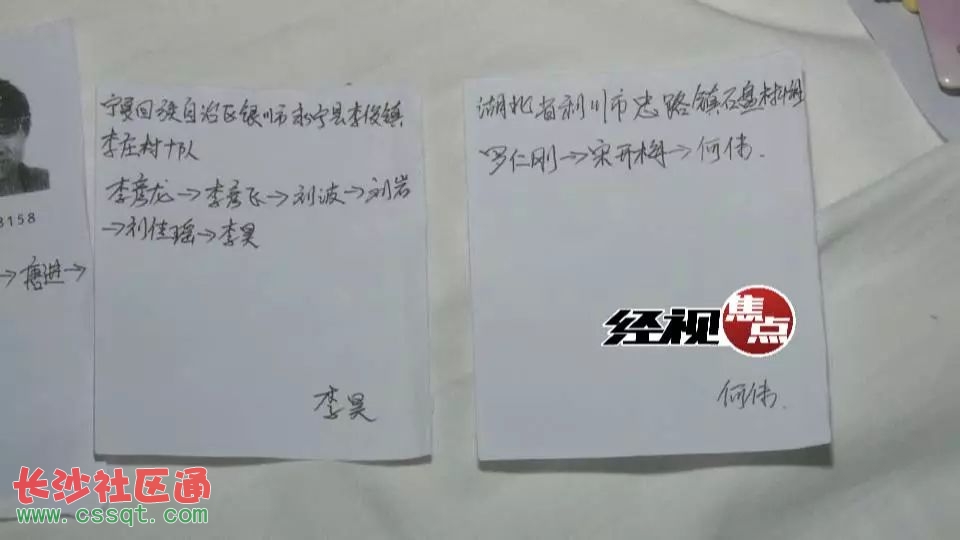 3158
→唐进→
宁夏回族自治区银川市永宁县李俊镇
李庄村十队
李彦龙→李彦飞→刘波→刘岩
→刘佳瑶→李昊
李昊
湖北省利川市忠路镇石盘村
罗仁刚→宋开梅→何伟.
何伟.
经视
焦点
长沙社区通
www.cssqt.com